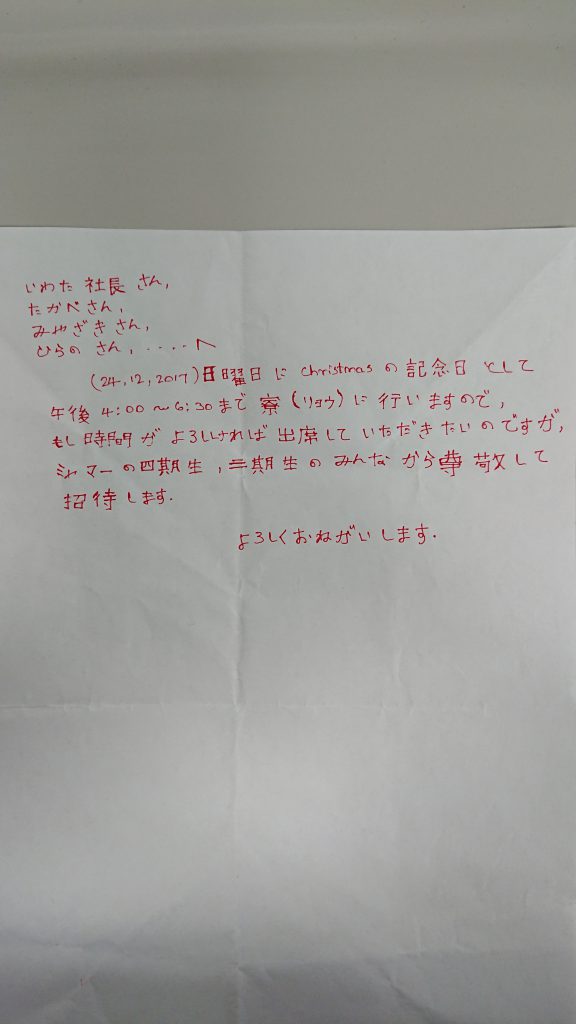 いわた 社長 さん,
たかべさん,
みやざきさん,
ひらの さん, .....へ
(24,12,2017)日曜日に christmas の記念日として
午後 4:00～6:30まで寮(リョウ)に行いますので,
もし時間が よろしければ 出席していただきたいのですが,
ミャマーの四期生,三期生のみんなから尊敬して
招待します.
よろしくおねがいします.